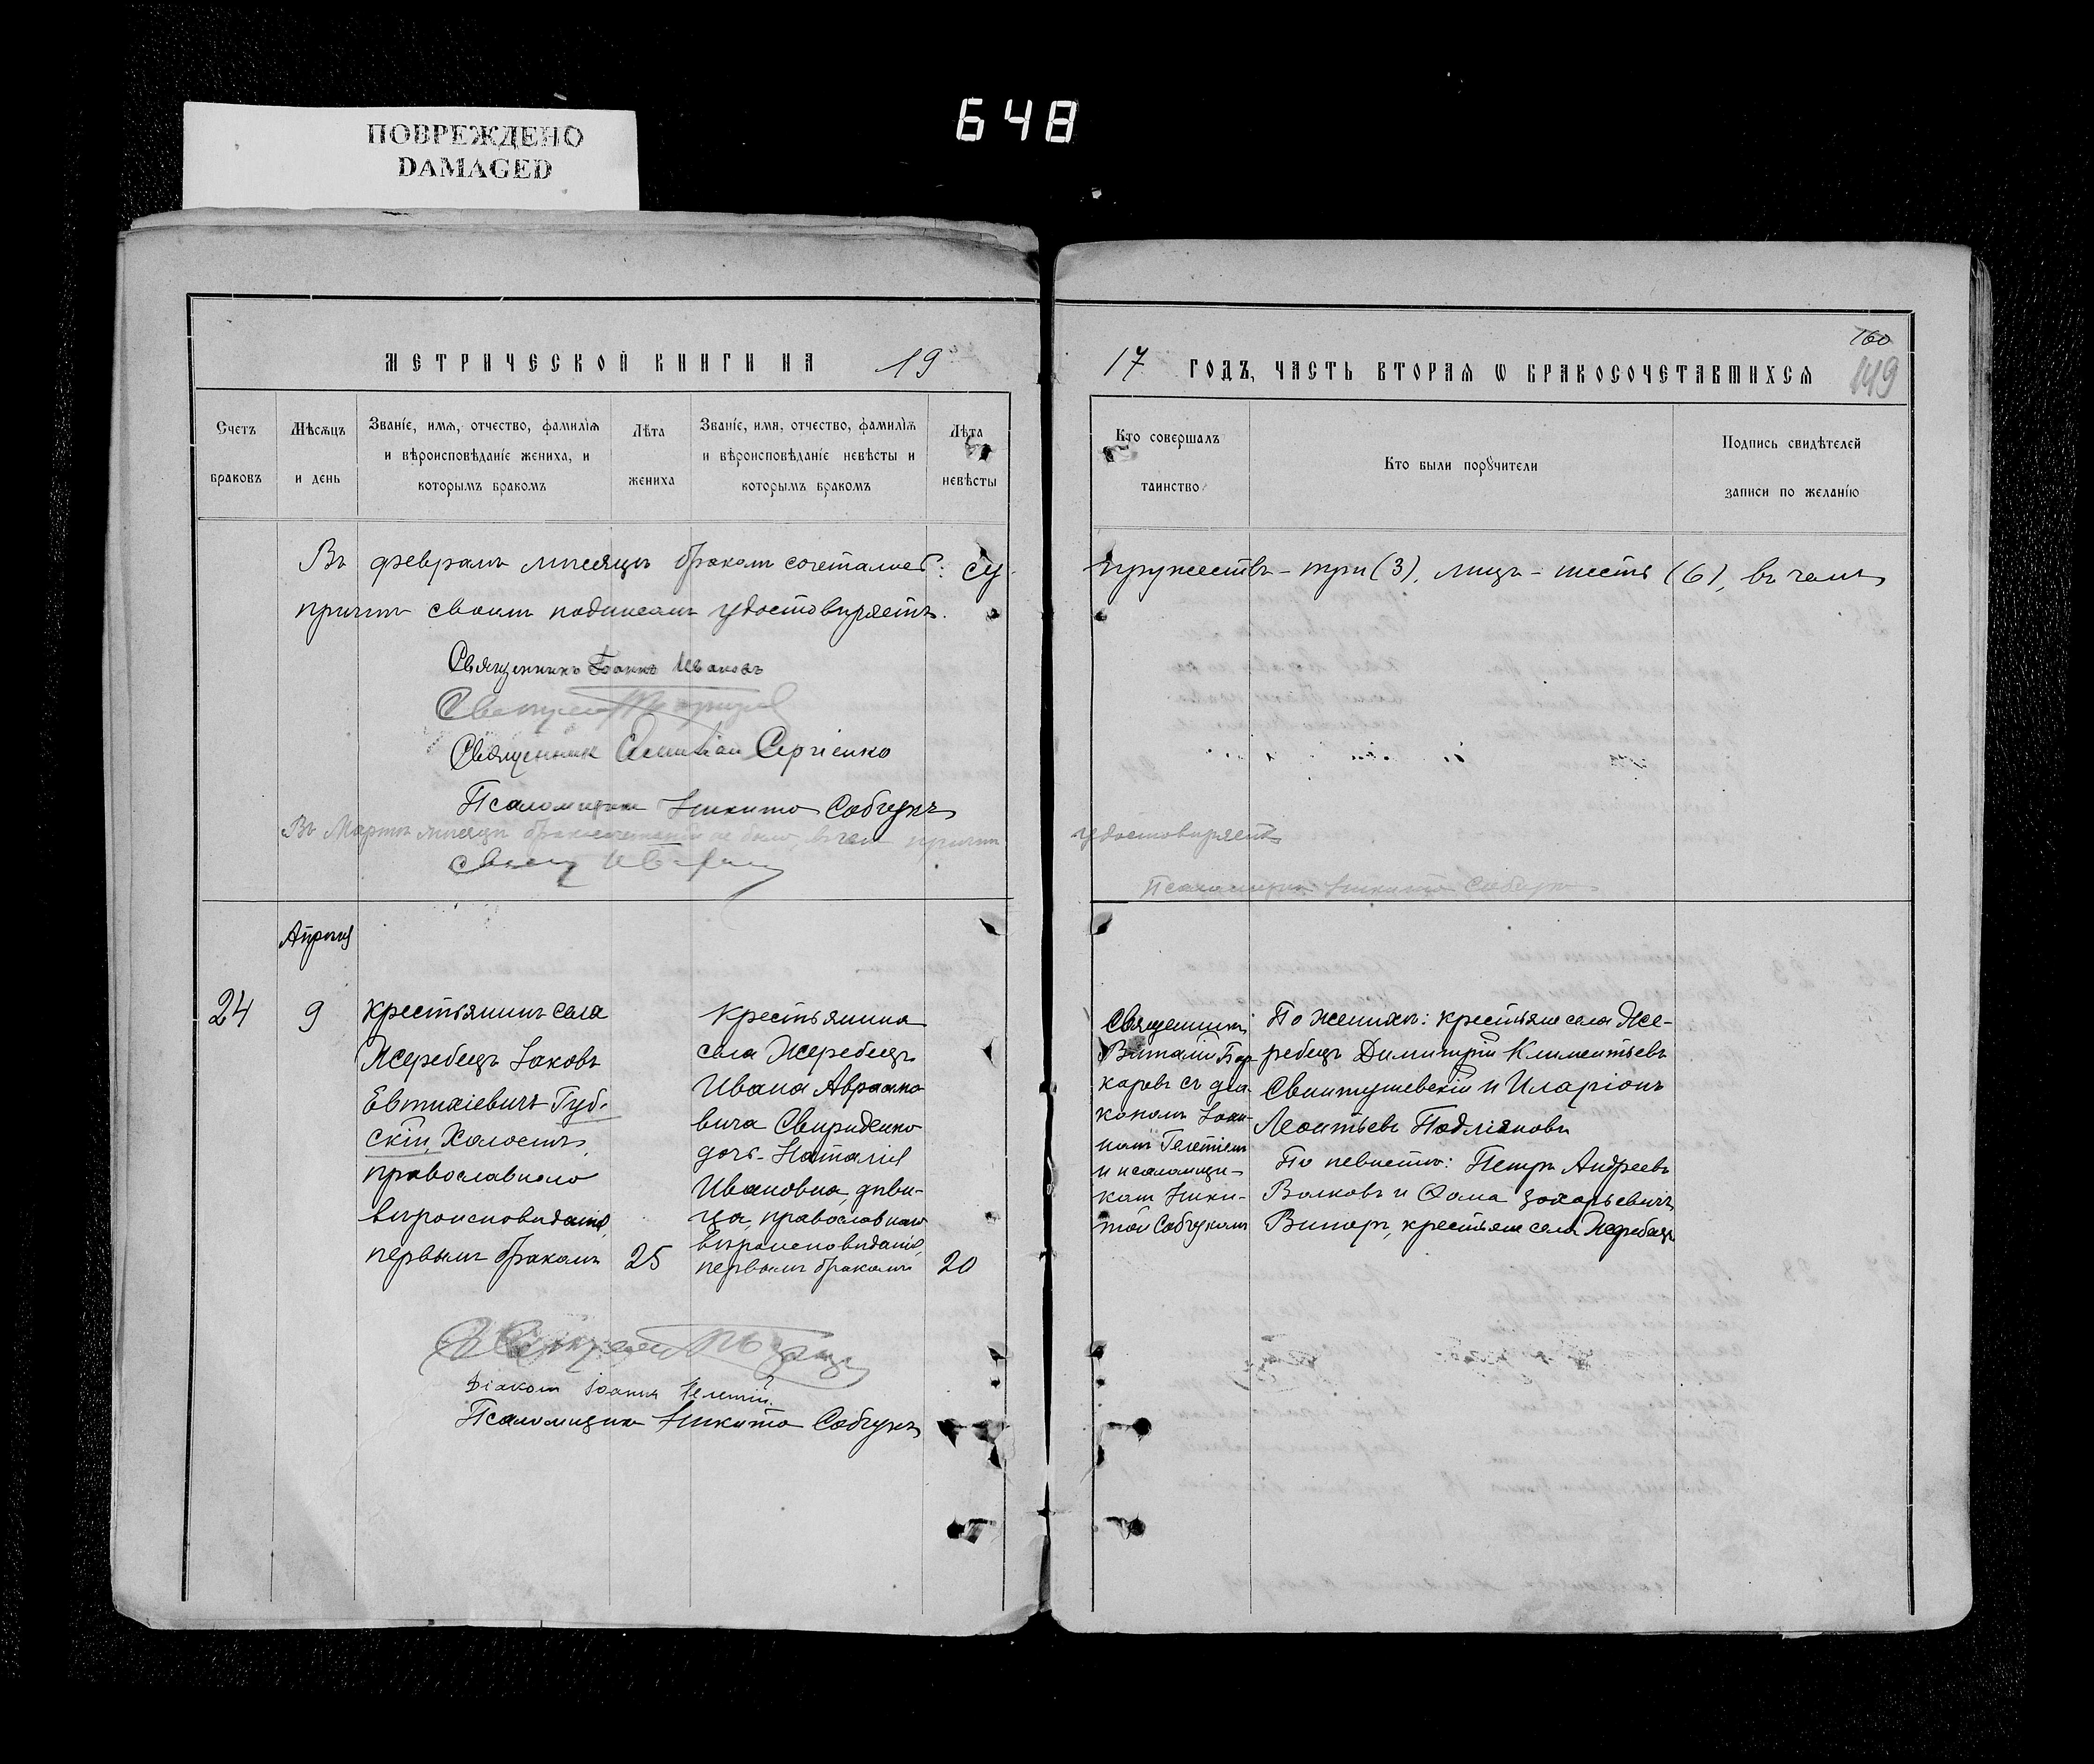 648
ПОВРЕЖДЕНО
DAMAGED
160
149
МЕТРИЧЕСКОЙ КНИГИ НА 19
17 ГОДЪ, ЧАСТЬ ВТОРАѦ Ѡ БРАКОСОЧЕТАВШИХСѦ
Счетъ браковъ
Мѣсѧцъ и день
Званіе, имѧ, отчество, фамиліѧ
и вѣроисповѣданіе жениха, и
которымъ бракомъ
Лѣта жениха
Званіе, имя, отчество, фамиліѧ
и вѣроисповѣданіе невѣсты и
которымъ бракомъ
Лѣта невѣсты
Кто совершалъ
таинство
Кто были порꙋчители
Подпись свидѣтелей
записи по желанію
Въ февралѣ мѣсяцѣ бракомъ сочеталось: су
пружествъ – три (3), лицъ – шесть (6), въ чемъ
причтъ своимъ подписомъ удостовѣряетъ.
Священникъ Іоаннъ Ивановъ
Священник Емиліан Сергіенко
Псаломщикъ Никита Собчукъ
Въ Мартѣ мѣсяцѣ бракосочетаній не было, въ чем причтъ
удостовѣряетъ
Псаломщикъ Никита Собчукъ
Апрѣля
24
9
крестьянинъ села
Жеребецъ Іаковъ
Евтихіевичъ Губ-
скій, Холостъ,
православнаго
вѣроисповѣданія,
первымъ бракомъ
25
Крестьянина
села Жеребецъ
Ивана Авраамо
вича Свириденко
дочь – Наталія
Ивановна, дѣви-
ца, православнаго
вѣроисповѣданія,
первымъ бракомъ
20
Священникъ
Виталій
каревъ съ діа
кономъ Іоан-
номъ Телетiемъ
и псаломщи-
комъ Ники-
той Собчукомъ
По женихѣ: крестьяне села Же-
ребецъ Димитрій Климентьевъ
Свинтушевскій и Иларіонъ
Леонтьевъ Подліяновъ
По невѣстѣ: Петръ Андреевъ
Волковъ и Ѳома Захарьевичъ
Виноръ, крестьяне села Жеребецъ
Діаконъ Іоаннъ Телетій
Псаломщикъ Никита Собчукъ